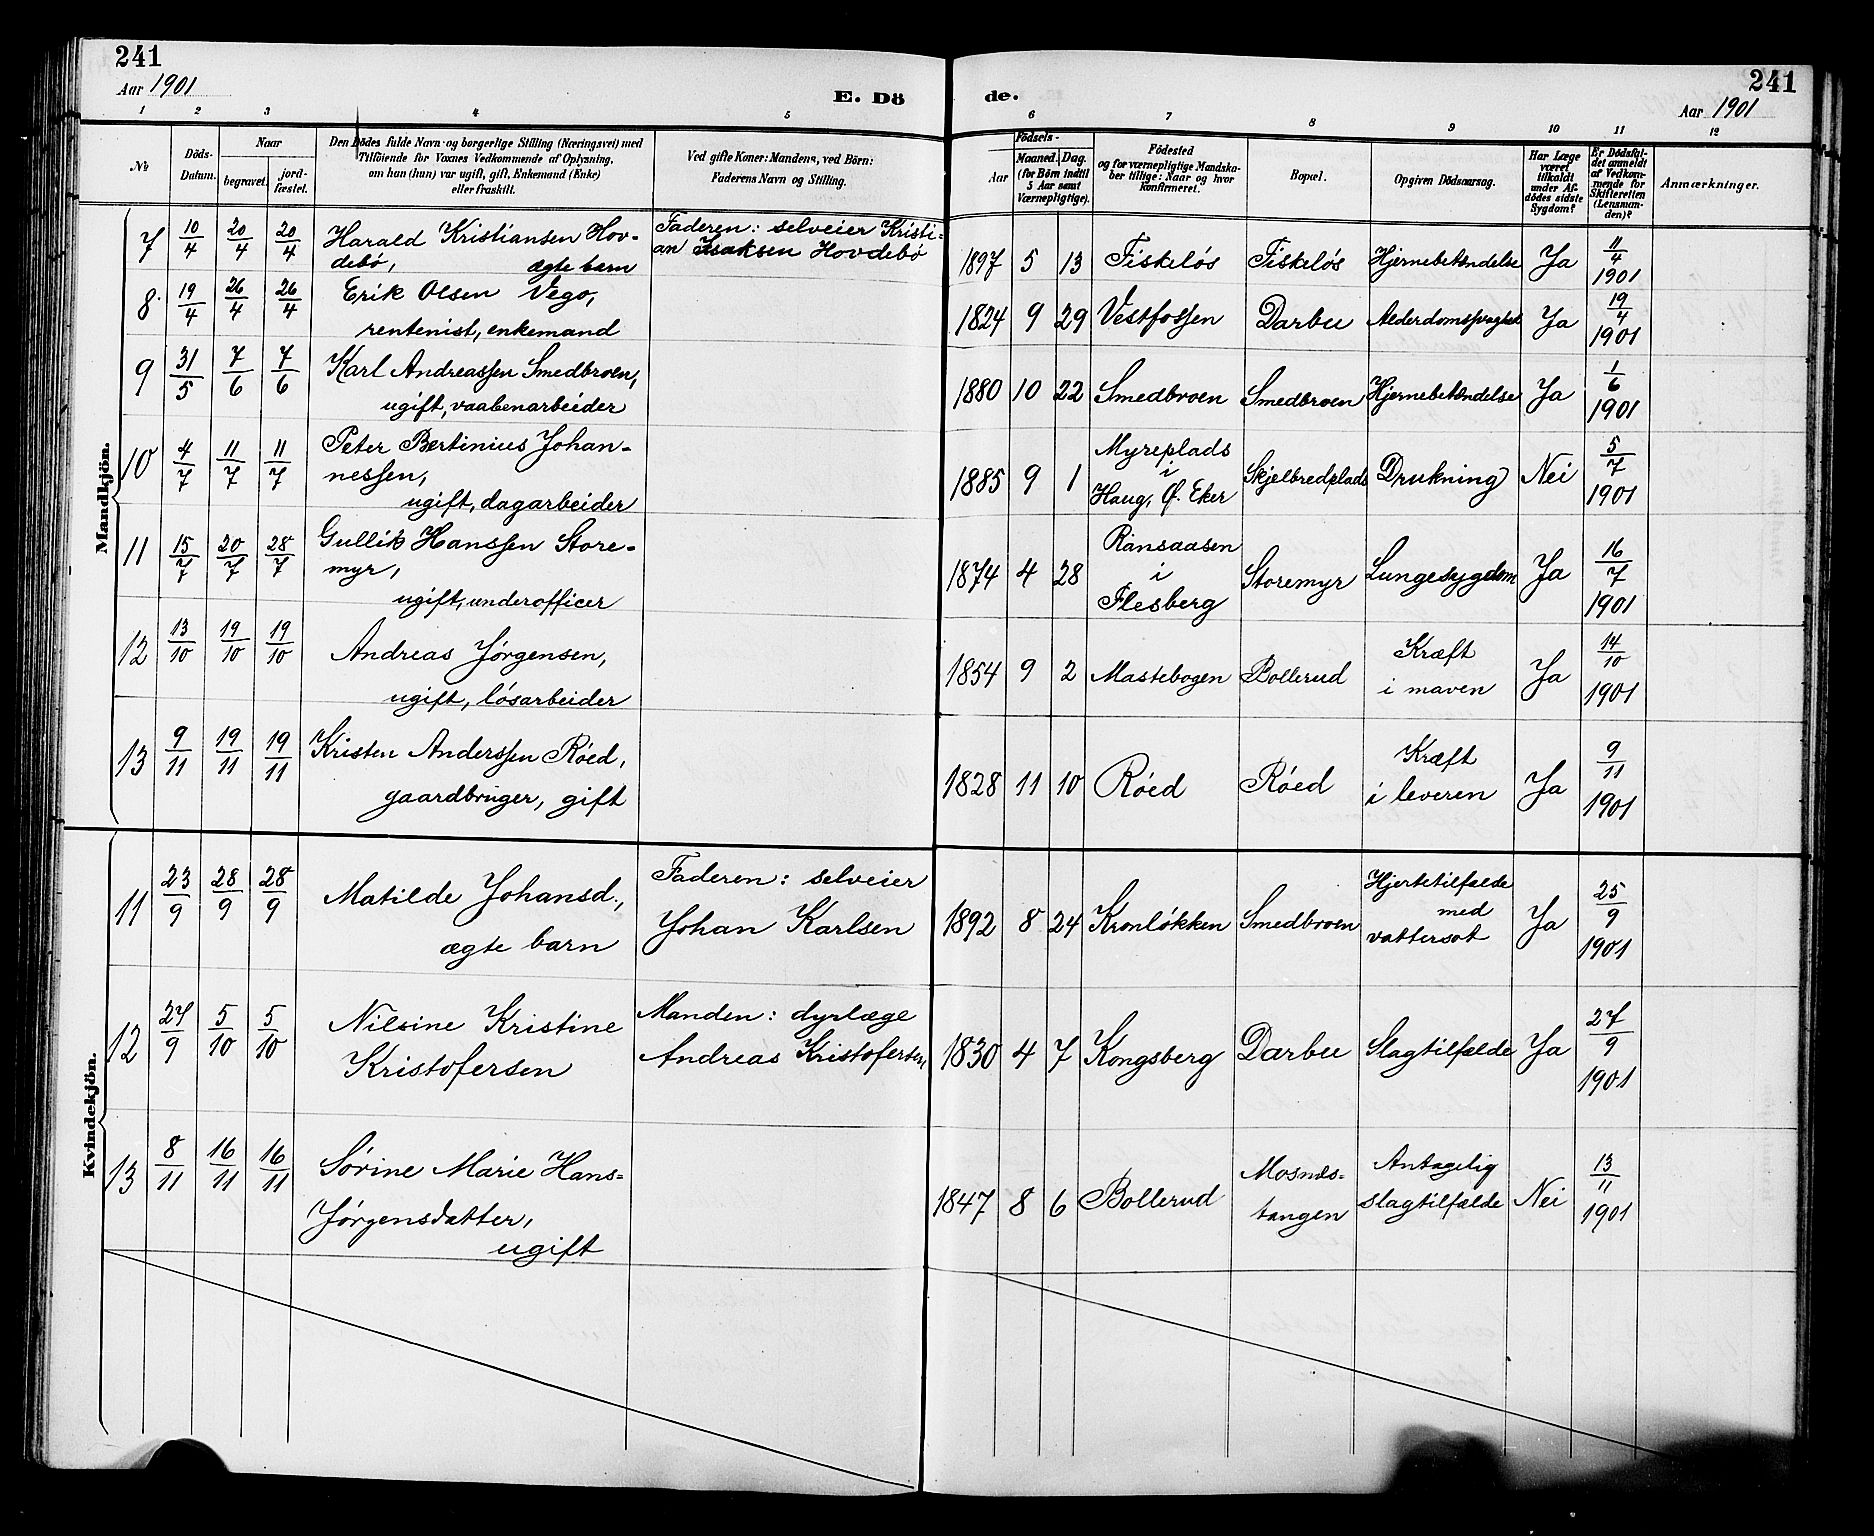 241
Aar 1901
E. Dö
de.
241
Aar 1901
1 2 3 4 5 6 7 8 9 10 11 12
No
Döds-
Datum.
Naar
begravet.
jord-
fæstet.
Den Dödes fulde Navn og borgerlige Stilling (Næringsvei) med
Tilföiende for Voxnes Vedkommende af Oplysning,
om han (hun) var ugift, gift, Enkemand (Enke)
eller fraskilt.
Ved gifte Koner: Mandens, ved Börn:
Faderens Navn og Stilling.
Födsels-
Aar
Maaned. Dag.
(for Börn indtil
5 Aar samt
Værnepligtige).
Födested
og for værnepligtige Mandska-
ber tillige: Naar og hvor
konfirmeret.
Bopæl.
Opgiven Dödsaarsag.
Har Læge
været
tilkaldt
under Af-
dödes sidste
Sygdom?
Er Dödsfal-
det anmeldt
af Vedkom-
mende for
Skifteretten
(Lensman-
den)?
Anmærkninger.
Mandkjön.
7 10/4 20/4 20/4 Harald Kristiansen Hov-
debö, ægte barn
Faderen: selveier Kristi-
an Isaksen Hovdebö
1897 5 13 Fiskeløs Fiskeløs Hjernebetændelse Ja 11/4 1901
8 19/4 26/4 26/4 Erik Olsen Vego,
rentenist, enkemand
1824 9 29 Vestfossen Darbu Alderdomssvaghet Ja 19/4 1901
9 31/5 7/6 7/6 Karl Andreassen Smedbroen,
ugift, vaabenarbeider
1880 10 22 Smedbroen Smedbroen Hjernebetændelse Ja 1/6 1901
10 4/7 11/7 11/7 Peter Bertinius Johan-
nessen,
ugift, dagarbeider
1885 9 1 Myreplads
i
Haug, Ø. Eker
Skjelbredplads Drukning Nei 5/7 1901
11 15/7 20/7 28/7 Gullik Hanssen Store-
myr,
ugift, underofficer
1874 4 28 Ransaasen
i
Flesberg
Storemyr Lungesygdom Ja 16/7 1901
12 13/10 19/10 19/10 Andreas Jørgensen,
ugift, løsarbeider
1854 9 2 Mastebogen Bollerud Kræft
i maven
Ja 14/10 1901
13 9/11 19/11 19/11 Kristen Anderssen Røed,
gaardbruger, gift
1828 11 10 Røed Røed Kræft
i leveren
Ja 9/11 1901
Kvindekjön.
11 23/9 28/9 28/9 Matilde Johansd.,
ægte barn
Faderen: selveier
Johan Karlsen
1892 8 24 Kronløkken Smedbroen Hjertetilfælde
med
vattersot
Ja 25/9 1901
12 27/9 5/10 5/10 Nilsine Kristine
Kristofersen
Manden: dyrlæge
Andreas Kristofersen,
1830 4 7 Kongsberg Darbu Slagtilfælde Ja 27/9 1901
13 8/11 16/11 16/11 Sørine Marie Hans-
Jørgensdatter,
ugift
1847 8 6 Bollerud Mosnæs-
tangen
Antagelig
slagtilfælde
Nei 13/11 1901